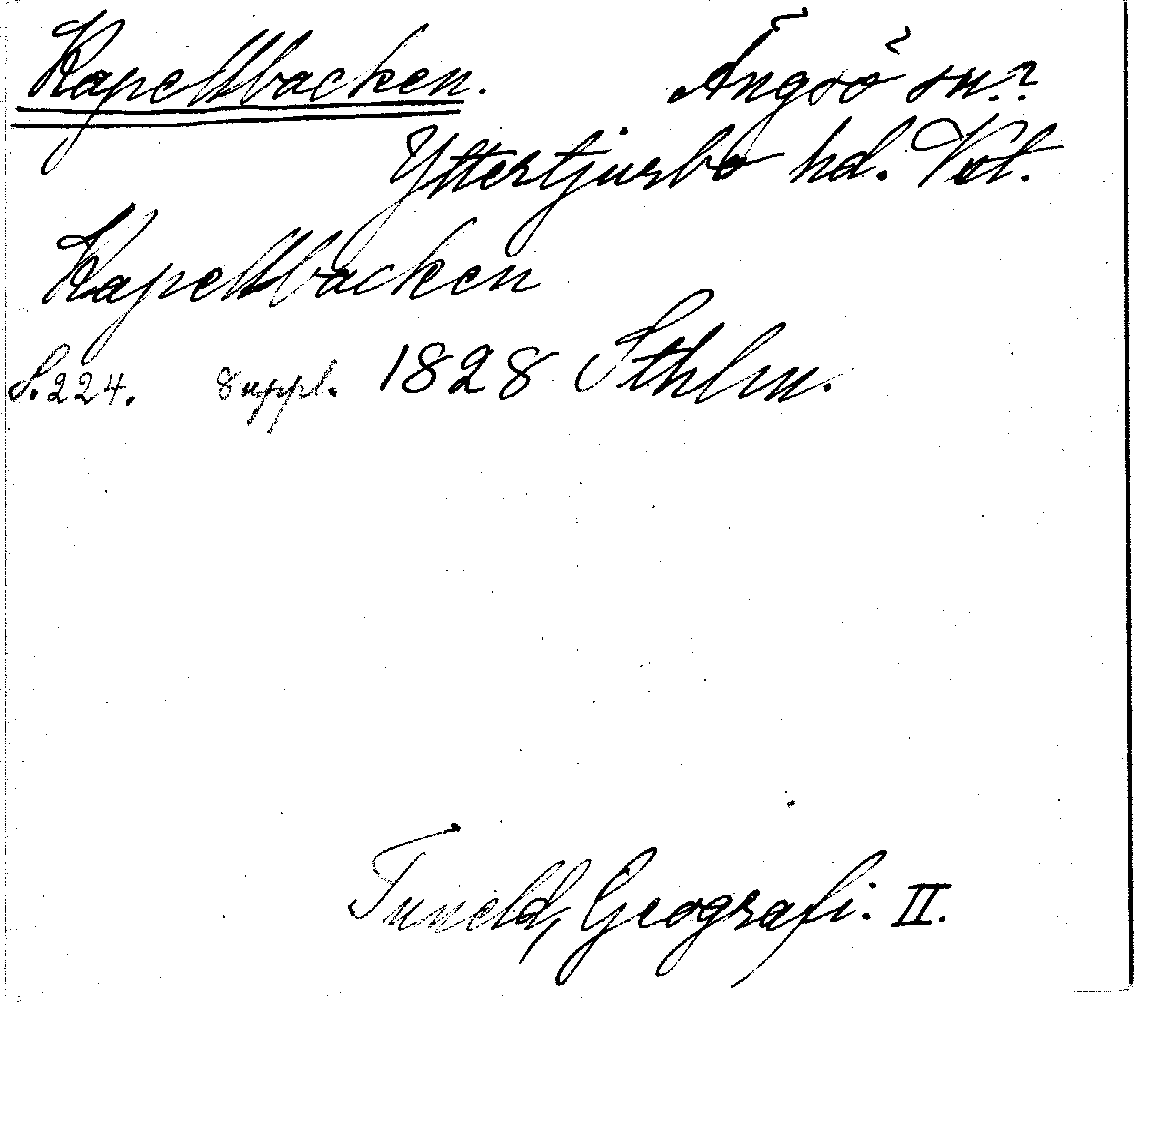 Kapellbacken. Ängsö sn.?
Yttertjurbo hd. Vstl.
Kapellbacken
S. 224. Suppl. 1828 Sthlm.
Tuneld, Geografi. II.